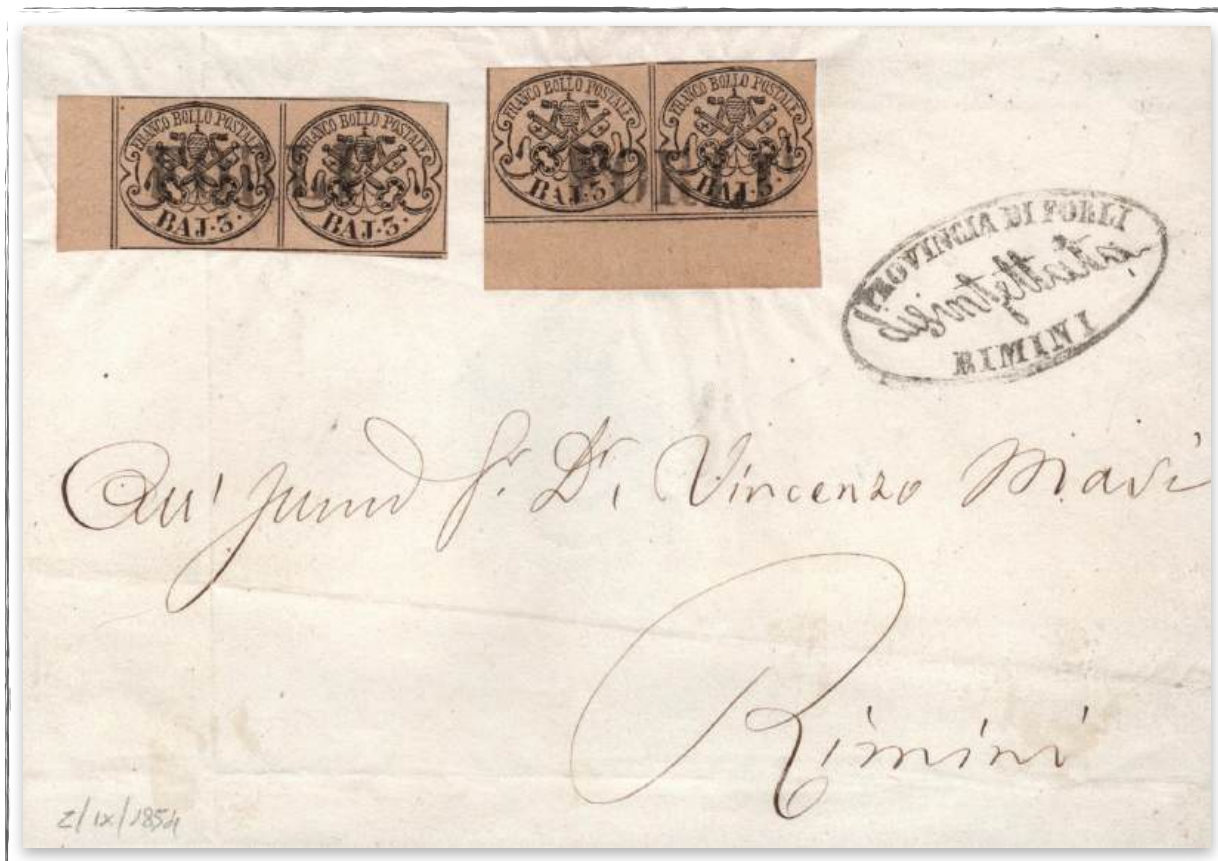 FRANCO BOLLO POSTALE
BAJ. 3.
FRANCO BOLLO POSTALE
BAJ. 3.
FRANCO BOLLO POSTALE
BAJ. 3.
FRANCO BOLLO POSTALE
BAJ. 3.
FORLI
PROVINCIA DI FORLI
disinfettata
RIMINI
Sr. Dr. Vincenzo Masi
Rimini
2/IX/1854